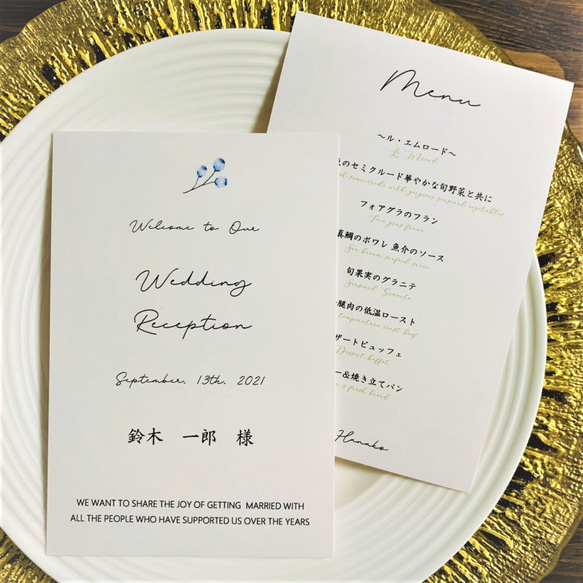 Welcome to Our
Wedding
Reception
September. 13th. 2021
鈴木 一郎 様
WE WANT TO SHARE THE JOY OF GETTING MARRIED WITH
ALL THE PEOPLE WHO HAVE SUPPORTED US OVER THE YEARS
Menu
～ル・エムロード～
のセミクルード華やかな旬野菜と共に
フォアグラのフラン
Foie gras flan
真鯛のポワレ 魚介のソース
Sea bream seafood sauce
旬果実のグラニテ
Seasonal Granite
腿肉の低温ロースト
temperature roast beef
ザートビュッフェ
Dessert buffet
ー&焼き立てパン
fresh bread
Hanako